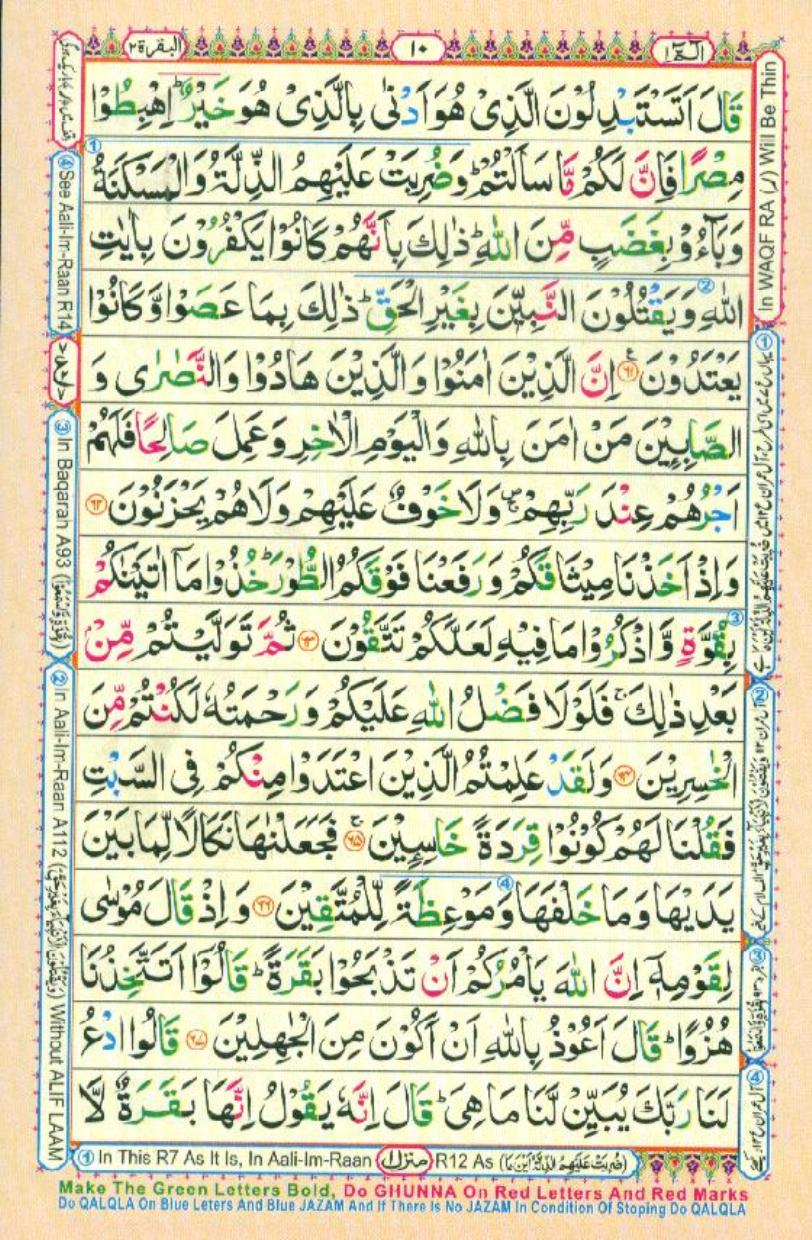 الٓمّٓ ١
١٠
البقرة ٢
قَالَ اَتَسْتَبْدِلُوْنَ الَّذِىْ هُوَ اَدْنٰى بِالَّذِىْ هُوَ خَيْرٌ ؕ اِهْبِطُوْا
مِصْرًا فَاِنَّ لَكُمْ مَّا سَاَلْتُمْ ؕ وَضُرِبَتْ عَلَيْهِمُ الذِّلَّةُ وَالْمَسْكَنَةُ
وَبَآءُوْ بِغَضَبٍ مِّنَ اللّٰهِ ؕ ذٰلِكَ بِاَنَّهُمْ كَانُوْا يَكْفُرُوْنَ بِاٰيٰتِ
اللّٰهِ وَيَقْتُلُوْنَ النَّبِيّٖنَ بِغَيْرِ الْحَقِّ ؕ ذٰلِكَ بِمَا عَصَوْا وَّكَانُوْا
يَعْتَدُوْنَ ۶۱ اِنَّ الَّذِيْنَ اٰمَنُوْا وَالَّذِيْنَ هَادُوْا وَالنَّصٰرٰى وَ
الصَّابِـِٕيْنَ مَنْ اٰمَنَ بِاللّٰهِ وَالْيَوْمِ الْاٰخِرِ وَعَمِلَ صَالِحًا فَلَهُمْ
اَجْرُهُمْ عِنْدَ رَبِّهِمْ ۪ۚ وَلَا خَوْفٌ عَلَيْهِمْ وَلَا هُمْ يَحْزَنُوْنَ ۶۲
وَاِذْ اَخَذْنَا مِيْثَاقَكُمْ وَرَفَعْنَا فَوْقَكُمُ الطُّوْرَ ؕ خُذُوْا مَآ اٰتَيْنٰكُمْ
بِقُوَّةٍ وَّاذْكُرُوْا مَا فِيْهِ لَعَلَّكُمْ تَتَّقُوْنَ ۶۳ ثُمَّ تَوَلَّيْتُمْ مِّنْ
بَعْدِ ذٰلِكَ ۚ فَلَوْلَا فَضْلُ اللّٰهِ عَلَيْكُمْ وَرَحْمَتُهٗ لَكُنْتُمْ مِّنَ
الْخٰسِرِيْنَ ۶۴ وَلَقَدْ عَلِمْتُمُ الَّذِيْنَ اعْتَدَوْا مِنْكُمْ فِى السَّبْتِ
فَقُلْنَا لَهُمْ كُوْنُوْا قِرَدَةً خَاسِـِٕيْنَ ۶۵ ۚ فَجَعَلْنٰهَا نَكَالًا لِّمَا بَيْنَ
يَدَيْهَا وَمَا خَلْفَهَا وَمَوْعِظَةً لِّلْمُتَّقِيْنَ ۶۶ وَاِذْ قَالَ مُوْسٰى
لِقَوْمِهٖٓ اِنَّ اللّٰهَ يَاْمُرُكُمْ اَنْ تَذْبَحُوْا بَقَرَةً ؕ قَالُوْٓا اَتَتَّخِذُنَا
هُزُوًا ؕ قَالَ اَعُوْذُ بِاللّٰهِ اَنْ اَكُوْنَ مِنَ الْجٰهِلِيْنَ ۶۷ قَالُوا ادْعُ
لَنَا رَبَّكَ يُبَيِّنْ لَّنَا مَا هِىَ ؕ قَالَ اِنَّهٗ يَقُوْلُ اِنَّهَا بَقَرَةٌ لَّا
In WAQF RA (ر) Will Be Thin
④ See Aali-Im-Raan R14
③ In Baqarah A93
② In Aali-Im-Raan A112 (وَيَقْتُلُوْنَ الْاَنْۢبِيَآءَ بِغَيْرِ حَقٍّ) Without ALIF LAAM
① In This R7 As It Is, In Aali-Im-Raan منزل ١ R12 As (ضُرِبَتْ عَلَيْهِمُ الذِّلَّةُ اَيْنَ مَا)
Make The Green Letters Bold, Do GHUNNA On Red Letters And Red Marks
Do QALQLA On Blue Leters And Blue JAZAM And If There Is No JAZAM In Condition Of Stoping Do QALQLA